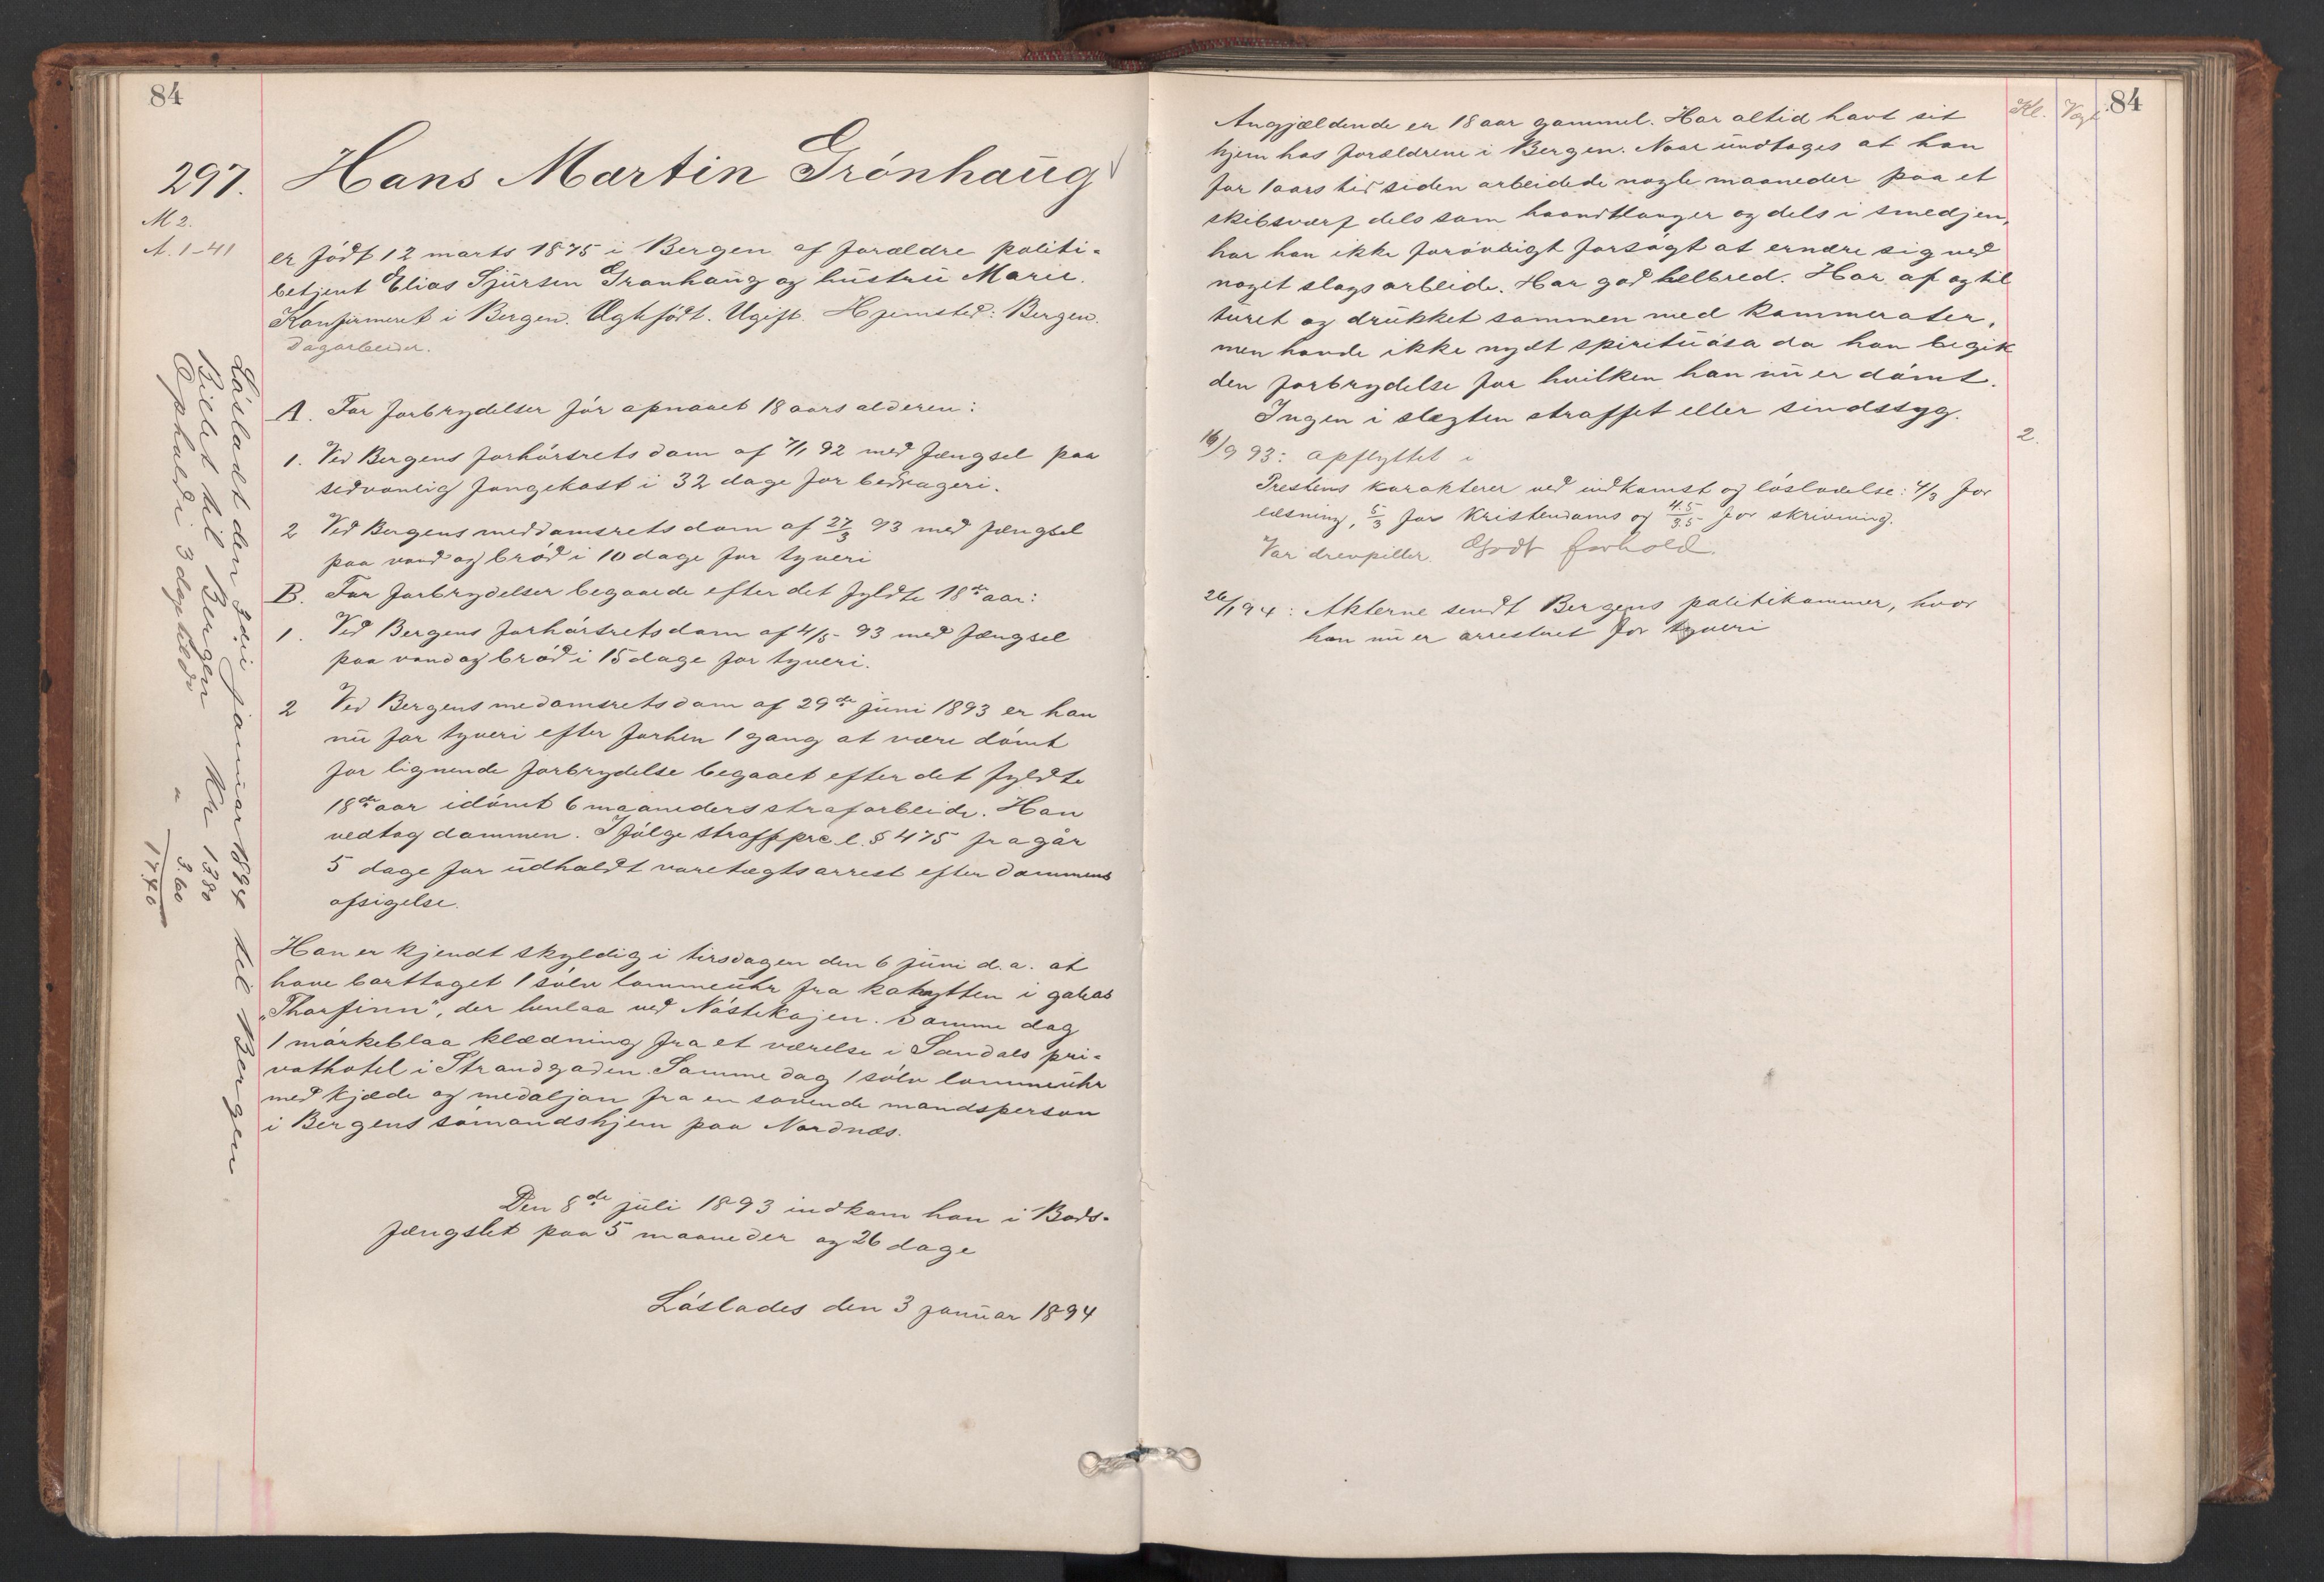 84
297. Hans Martin Grónhaug
M 2.
A. 1-41
er födt 12 marts 1875 i Bergen af forældre politi-
betjent Elias Sjursen Grønhaug og hustru Marie.
Konfirmeret i Bergen. Ægtefödt. Ugift. Hjemsted: Bergen.
Dagarbeider.
A. For forbrydelser för opnaaet 18 aars alderen:
1. Ved Bergens forhörsrets dom af 7/1 92 med fængsel paa
sedvanlig fangekost i 32 dage for bedrageri.
2 Ved Bergens meddomsrets dom af 27/3 93 med fængsel
paa vand og bród i 10 dage for tyveri
B. For forbrydelser begaaede efter det fyldte 18de aar:
1. Ved Bergens forhörsrets dom af 4/5 - 93 med fængsel
paa vand og bród i 15 dage for tyveri.
2 Ved Bergens medomsrets dom af 29de juni 1893 er han
nu for tyveri efter forhen 1 gang at være dómt
for lignende forbrydelse begaaet efter det fyldte
18de aar idómt 6 maaneders strafarbeide. Han
vedtog dommen. Ifólge straffprc. l. § 475 fragår
5 dage for udholdt varetægtsarrest efter dommens
afsigelse.
Han er kjendt skyldig i tirsdagen den 6 juni d.a. at
have borttaget 1 sólv lommeuhr fra kahytten i galeas
"Thorfinn", der henlaa ved Nóstekajen. Samme dag
1 mórkeblaa klædning fra et værelse i Sandals pri-
vathotel i Strandgaden. Samme dag 1 sólv lommeuhr
med kjæde og medaljon fra en sovende mandsperson
i Bergens sómandshjem paa Nordnæs.
Den 8de juli 1893 indkom han i Bods-
fængslet paa 5 maaneder og 26 dage
Lóslades den 3 januar 1894
Lósladt den 3die januar 1894 til Bergen
Billet til Bergen Kr 13.80
Ophold i 3 dage tilds " 3.60
17.40
Kl. Vægt. 84
Angjældende er 18 aar gammel. Har altid havt sit
hjem hos forældrene i Bergen. Naar undtages at han
for 1 aars tid siden arbeidede nogle maaneder paa et
skibsværf dels som haandtlanger og dels i smedjen,
har han ikke foróvrigt forsógt at ernære sig ved
noget slags arbeide. Har god helbred. Har af og til
turet og drukket sammen med kammerater,
men havde ikke nydt spirituósa da han begik
den forbrydelse for hvilken han nu er dómt.
Ingen i slægten straffet eller sindssyg.
16/9 93: opflyttet i 2.
Prestens karakterer ved indkomst og lósladelse: 4/3 for
læsning, 5/3 for kristendoms og 4.5/3.5 for skrivning.
Var drevpiller. Godt forhold.
26/1 94: Akterne sendt Bergens politikammer, hvor
han nu er arresteret for tyveri